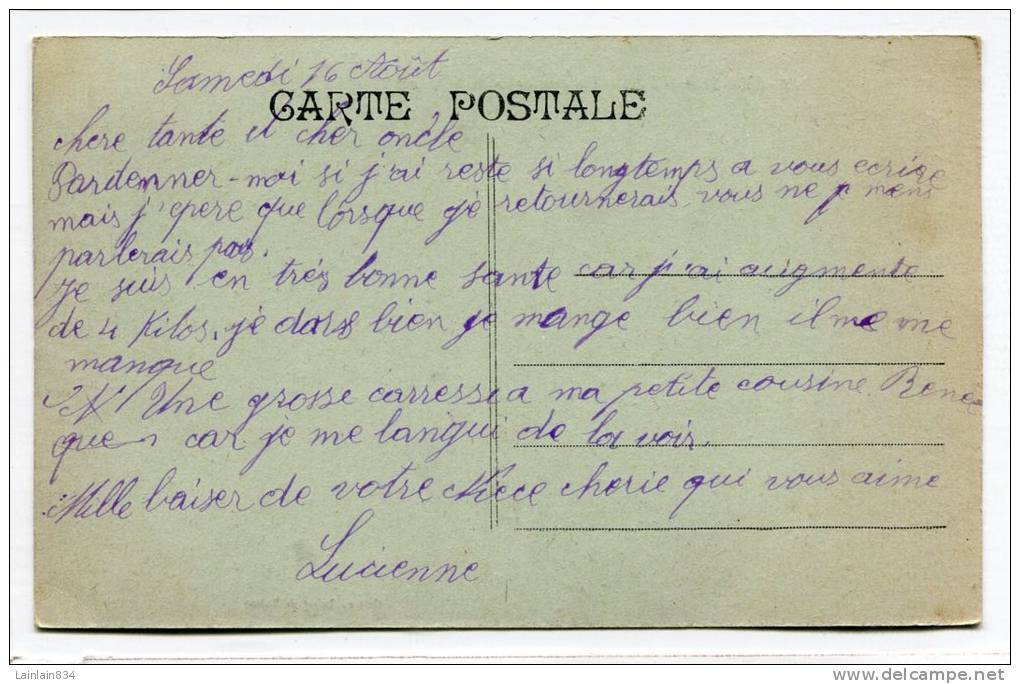 Samedi 16 Août
CARTE POSTALE
chere tante et cher oncle
Pardenner-moi si j'ai reste si longtemps a vous ecrire
mais j'epere que lorsque je retournerais vous ne me
parlerais pas.
je suis en trés bonne sante car j'ai augmente
de 4 Kilos. je dors bien je mange bien il me me
manque
Une grosse caresse a ma petite cousine Bene
que car je me langui de la voir.
Mille baiser de votre Niece cherie qui vous aime
Lucienne
Lainlain834
www.delcampe.net